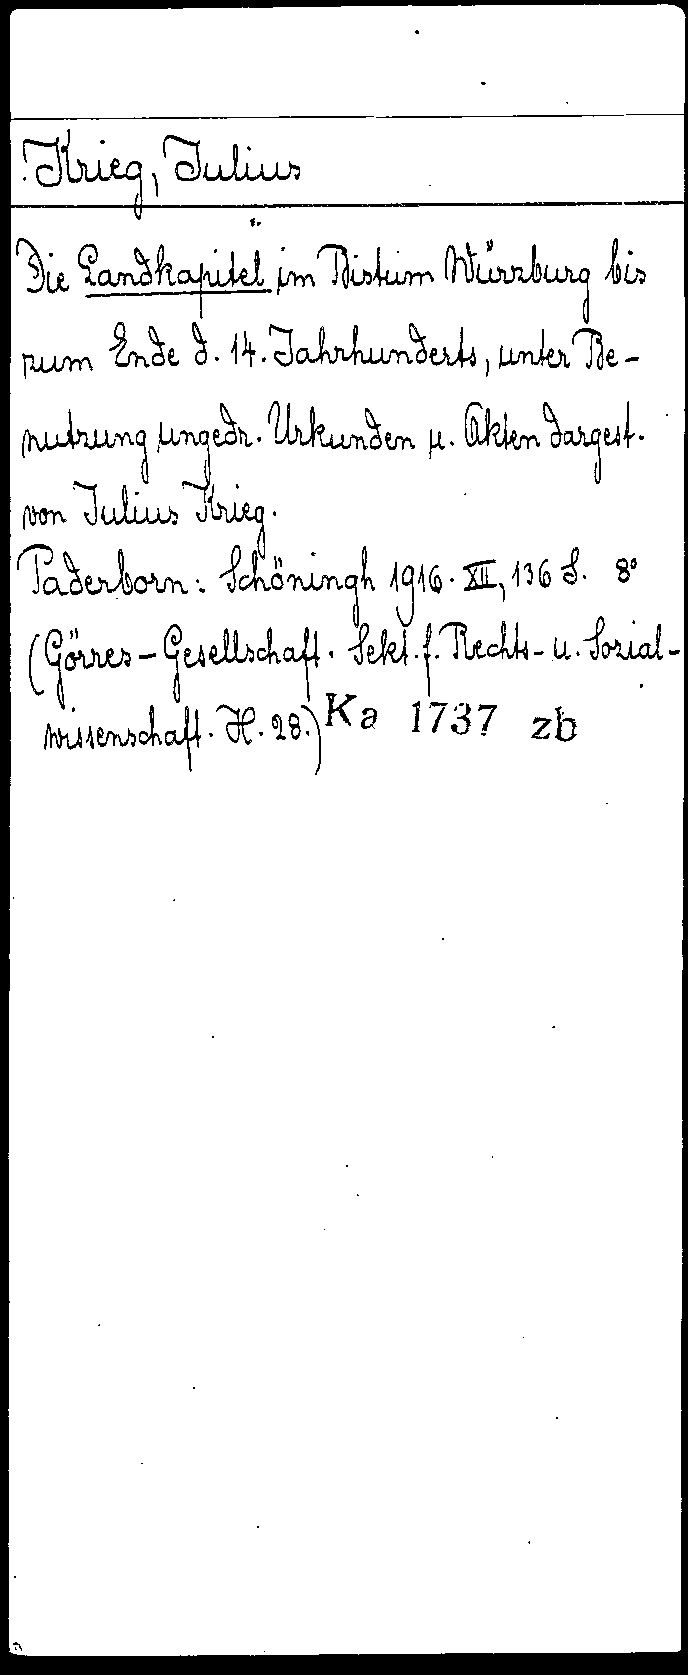 Krieg, Julius
Die Landkapitel im Bistum Würzburg bis
zum Ende d. 14. Jahrhunderts, unter Be-
nutzung ungedr. Urkunden u. Akten dargest.
von Julius Krieg.
Paderborn: Schöningh 1916. XII, 136 S. 8°
(Görres-Gesellschaft. Sekt. f. Rechts- u. Sozial-
wissenschaft. H. 28.) Ka 1737 zb